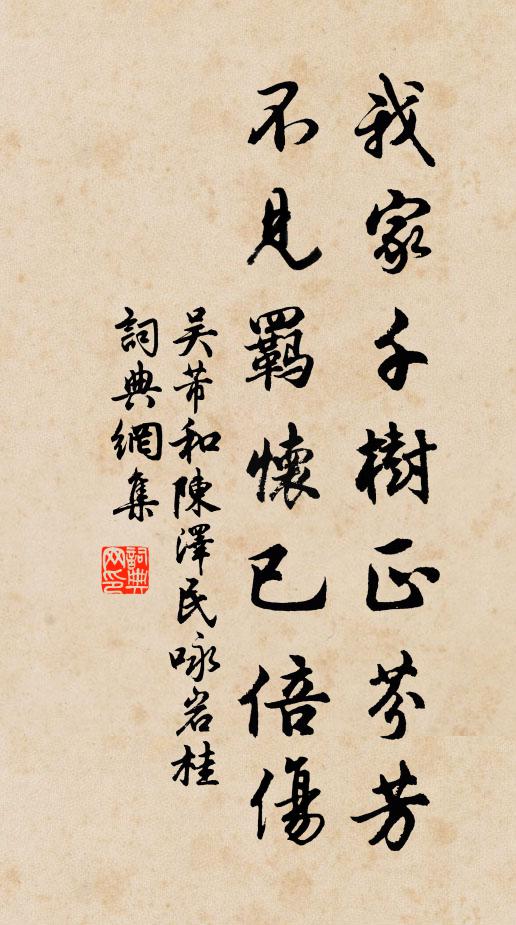 我家千樹正芬芳
不見羈懷已倍傷
吴芾和陳澤民咏岩桂
詞典網集
詞典网印